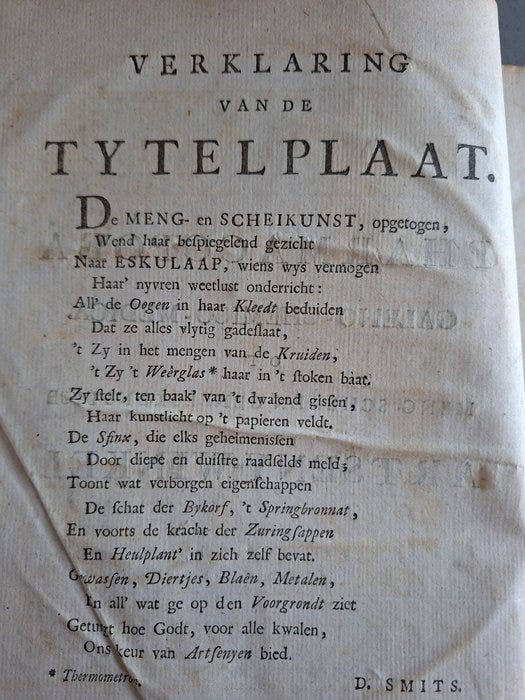 VERKLARING
VAN DE
TYTELPLAAT.
De MENG- en SCHEIKUNST, opgetogen,
Wend haar bespiegelend gezicht
Naar ESKULAAP, wiens wys vermogen
Haar' nyvren weetlust onderricht:
All' de Oogen in haar Kleedt beduiden
Dat ze alles vlytig gadeslaat,
't Zy in het mengen van de Kruiden,
't Zy 't Weêrglas * haar in 't stoken baat.
Zy stelt, ten baak' van 't dwalend gissen,
Haar kunstlicht op 't papieren veldt.
De Sfinx, die elks geheimenissen
Door diepe en duistre raadselds meld,
Toont wat verborgen eigenschappen
De schat der Bykorf, 't Springbronnat,
En voorts de kracht der Zuringsappen
En Heulplant' in zich zelf bevat.
Gewassen, Diertjes, Blaên, Metalen,
In all' wat ge op den Voorgrondt ziet
Getuigt hoe Godt, voor alle kwalen,
Ons keur van Artsenyen bied.
* Thermometron.
D. SMITS.